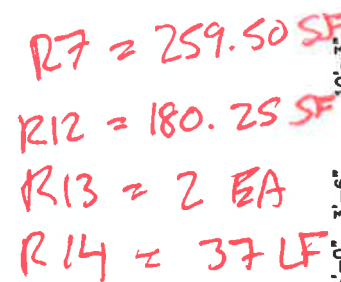 R7 = 259.50 SF
R12 = 180.25 SF
R13 = 2 EA
R14 = 37 LF